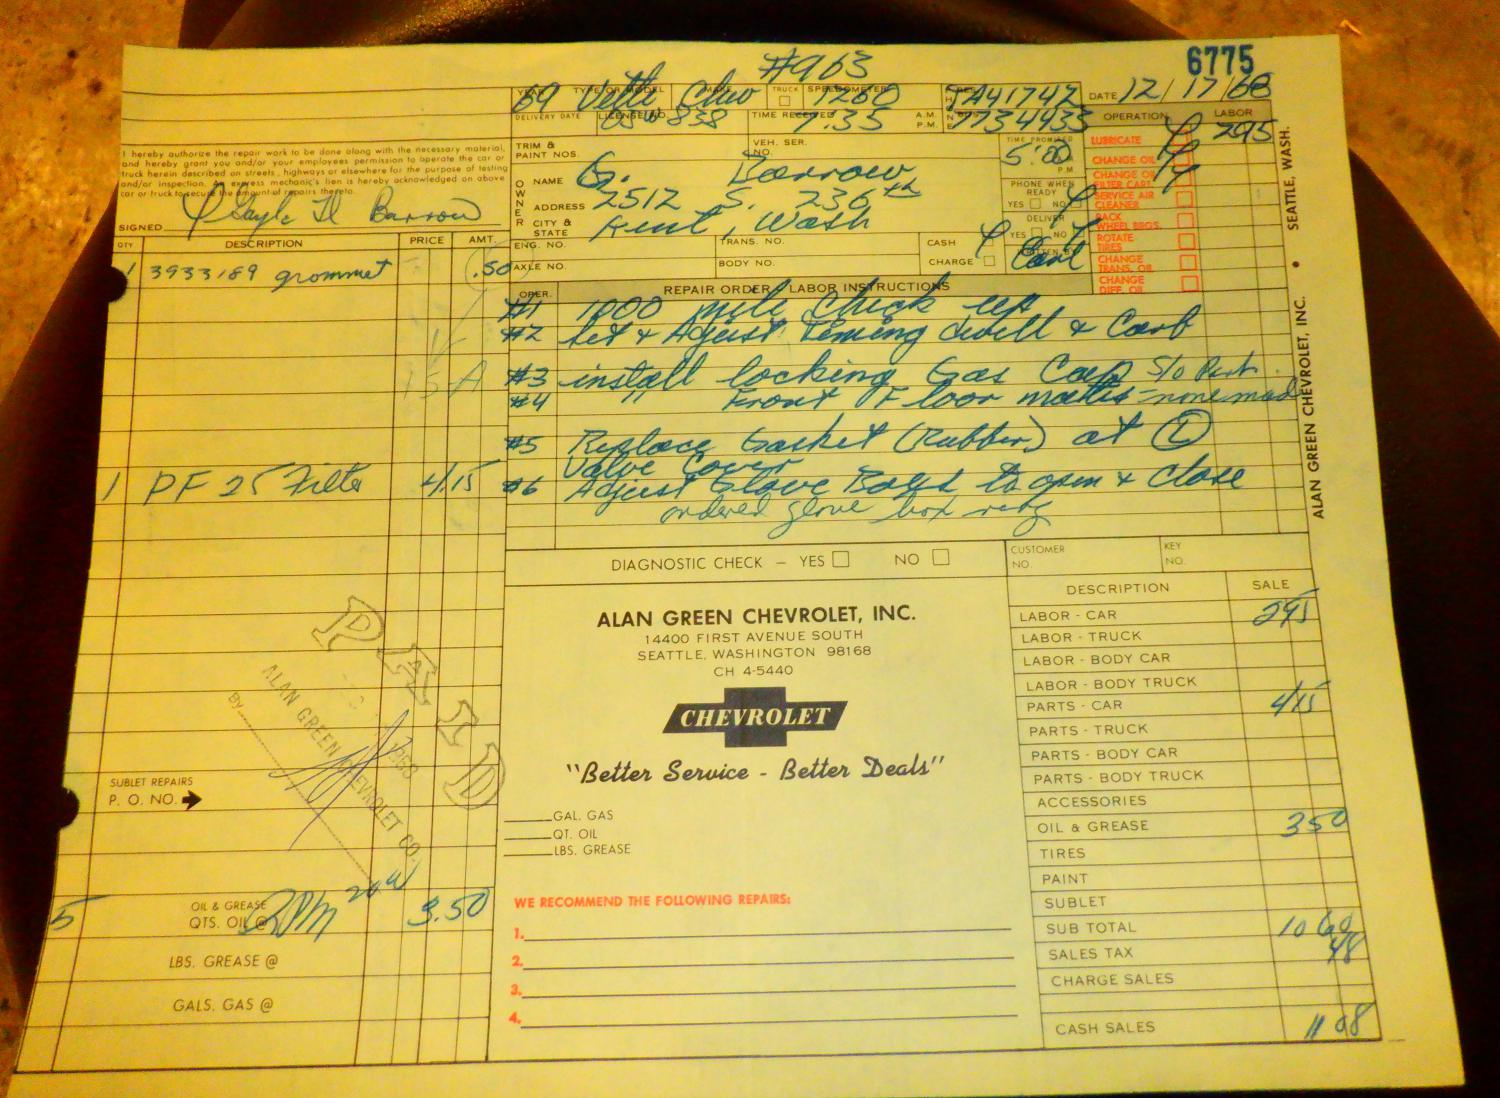 #963
6775
YEAR TYPE OR MODEL MAKE TRUCK SPEEDOMETER
69 Vette 1260 JA41742
DATE 12/17/68
DELIVERY DATE LICENSE NO. TIME RECEIVED A.M. P.M.
7:35 7734933
OPERATION LABOR
TRIM & PAINT NOS.
VEH. SER. NO.
TIME PROMISED
5:00 P.M.
LUBRICATE 295
CHANGE OIL
CHANGE OIL FILTER CART.
SERVICE AIR CLEANER
PACK WHEEL BRGS.
ROTATE TIRES
CHANGE TRANS. OIL
CHANGE DIFF. OIL
I hereby authorize the repair work to be done along with the necessary material,
and hereby grant you and/or your employees permission to operate the car or
truck herein described on streets, highways or elsewhere for the purpose of testing
and/or inspection. An express mechanic's lien is hereby acknowledged on above
car or truck to secure the amount of repairs thereto.
SIGNED Gayle Barrow
OWNER
NAME G. Barrow
ADDRESS 2512 S. 236th
CITY & STATE Kent, Wash
PHONE WHEN READY
YES NO
DELIVER
YES NO
ENG. NO. TRANS. NO. CASH
AXLE NO. BODY NO. CHARGE
QTY DESCRIPTION PRICE AMT.
1 3933189 grommet .50
1 PF 25 Filter 4.15
OPER. REPAIR ORDER - LABOR INSTRUCTIONS
#1 1000 mile check up
#2 Set & Adjust Timing dwell & Carb
#3 install locking Gas Cap S/O Part.
#4 " Front Floor matts - none made
#5 Replace Gasket (Rubber) at L
Valve Cover
#6 Adjust Glove Box to open & Close
ordered glove box
DIAGNOSTIC CHECK – YES NO
CUSTOMER NO.
KEY NO.
ALAN GREEN CHEVROLET, INC.
14400 FIRST AVENUE SOUTH
SEATTLE, WASHINGTON 98168
CH 4-5440
CHEVROLET
"Better Service - Better Deals"
GAL. GAS
QT. OIL
LBS. GREASE
WE RECOMMEND THE FOLLOWING REPAIRS:
1.
2.
3.
4.
PAID
1968
ALAN GREEN CHEVROLET CO.
By
SUBLET REPAIRS
P. O. NO.
OIL & GREASE
5 QTS. OIL @ RPM 20W 3.50
LBS. GREASE @
GALS. GAS @
DESCRIPTION SALE
LABOR - CAR 295
LABOR - TRUCK
LABOR - BODY CAR
LABOR - BODY TRUCK
PARTS - CAR 415
PARTS - TRUCK
PARTS - BODY CAR
PARTS - BODY TRUCK
ACCESSORIES
OIL & GREASE 350
TIRES
PAINT
SUBLET
SUB TOTAL 10 60
SALES TAX 48
CHARGE SALES
CASH SALES 11 08
ALAN GREEN CHEVROLET, INC. • SEATTLE, WASH.